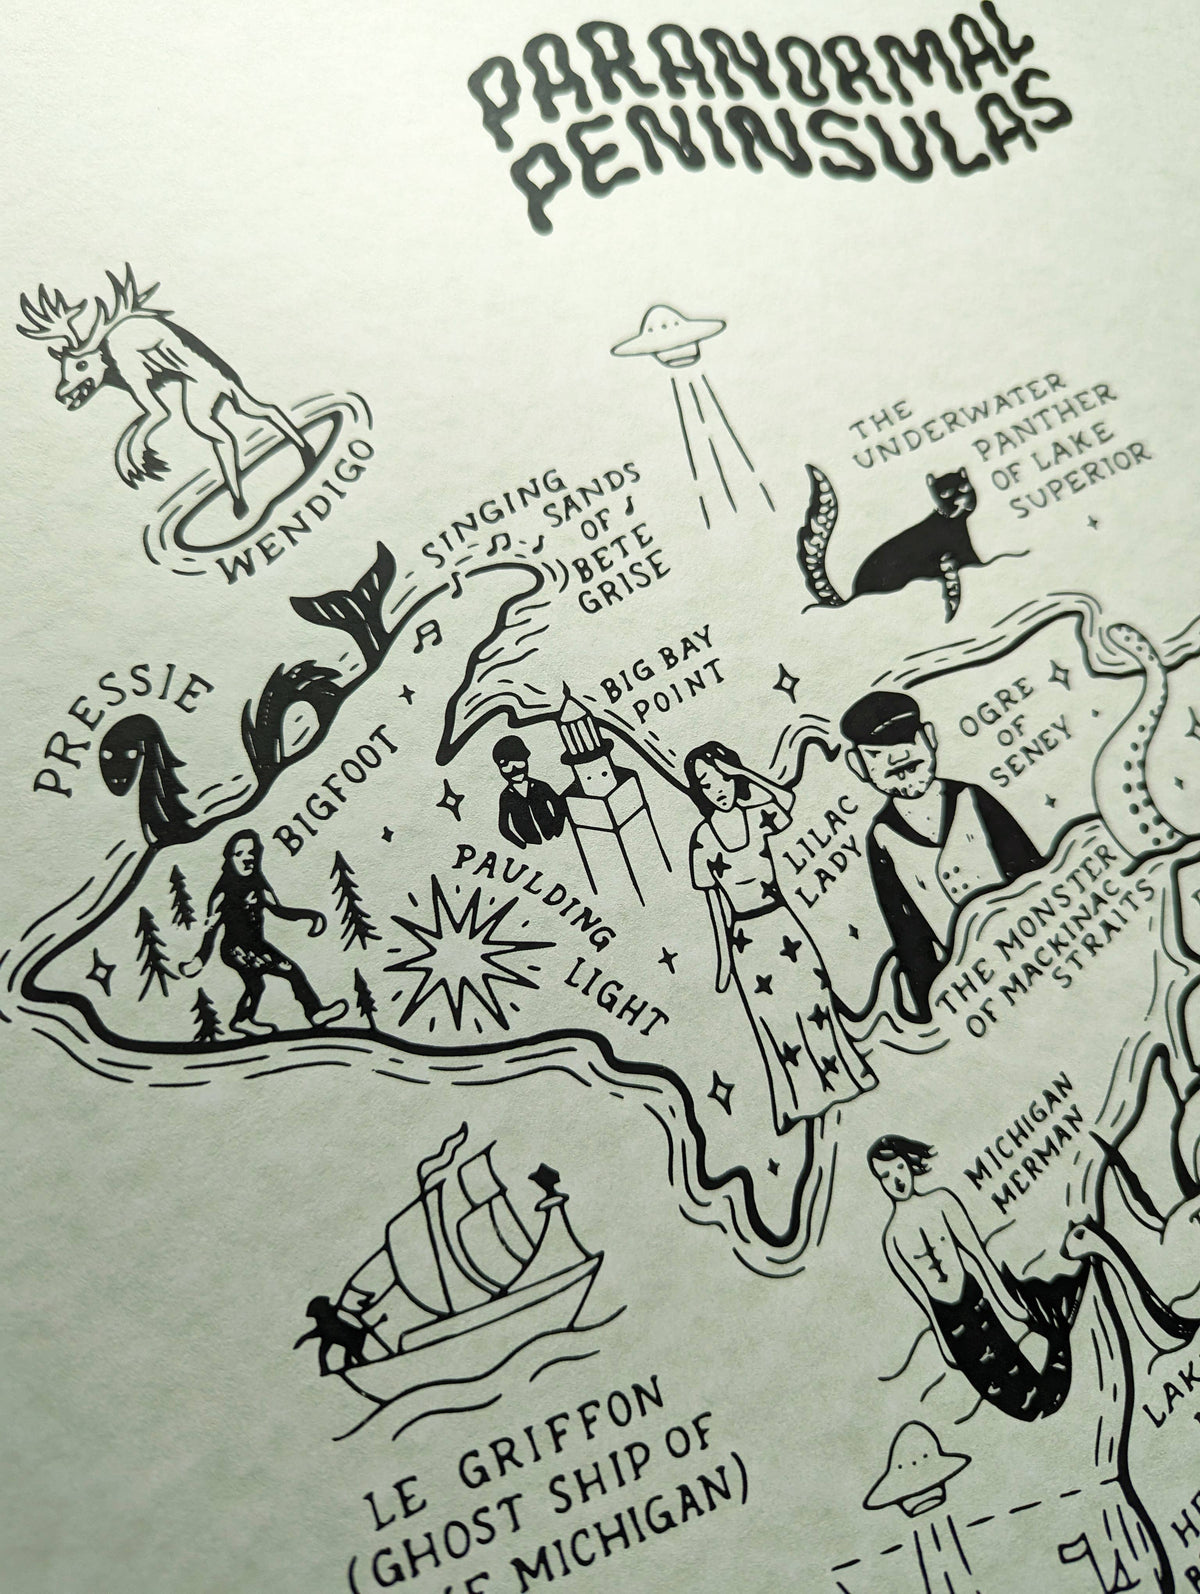 PARANORMAL
PENINSULAS
WENDIGO
SINGING
SANDS
OF
BETE
GRISE
THE
UNDERWATER
PANTHER
OF LAKE
SUPERIOR
PRESSIE
BIGFOOT
BIG BAY
POINT
PAULDING
LIGHT
LILAC
LADY
OGRE
OF
SENEY
THE MONSTER
OF MACKINAC
STRAITS
MICHIGAN
MERMAN
LE GRIFFON
(GHOST SHIP OF
MICHIGAN)